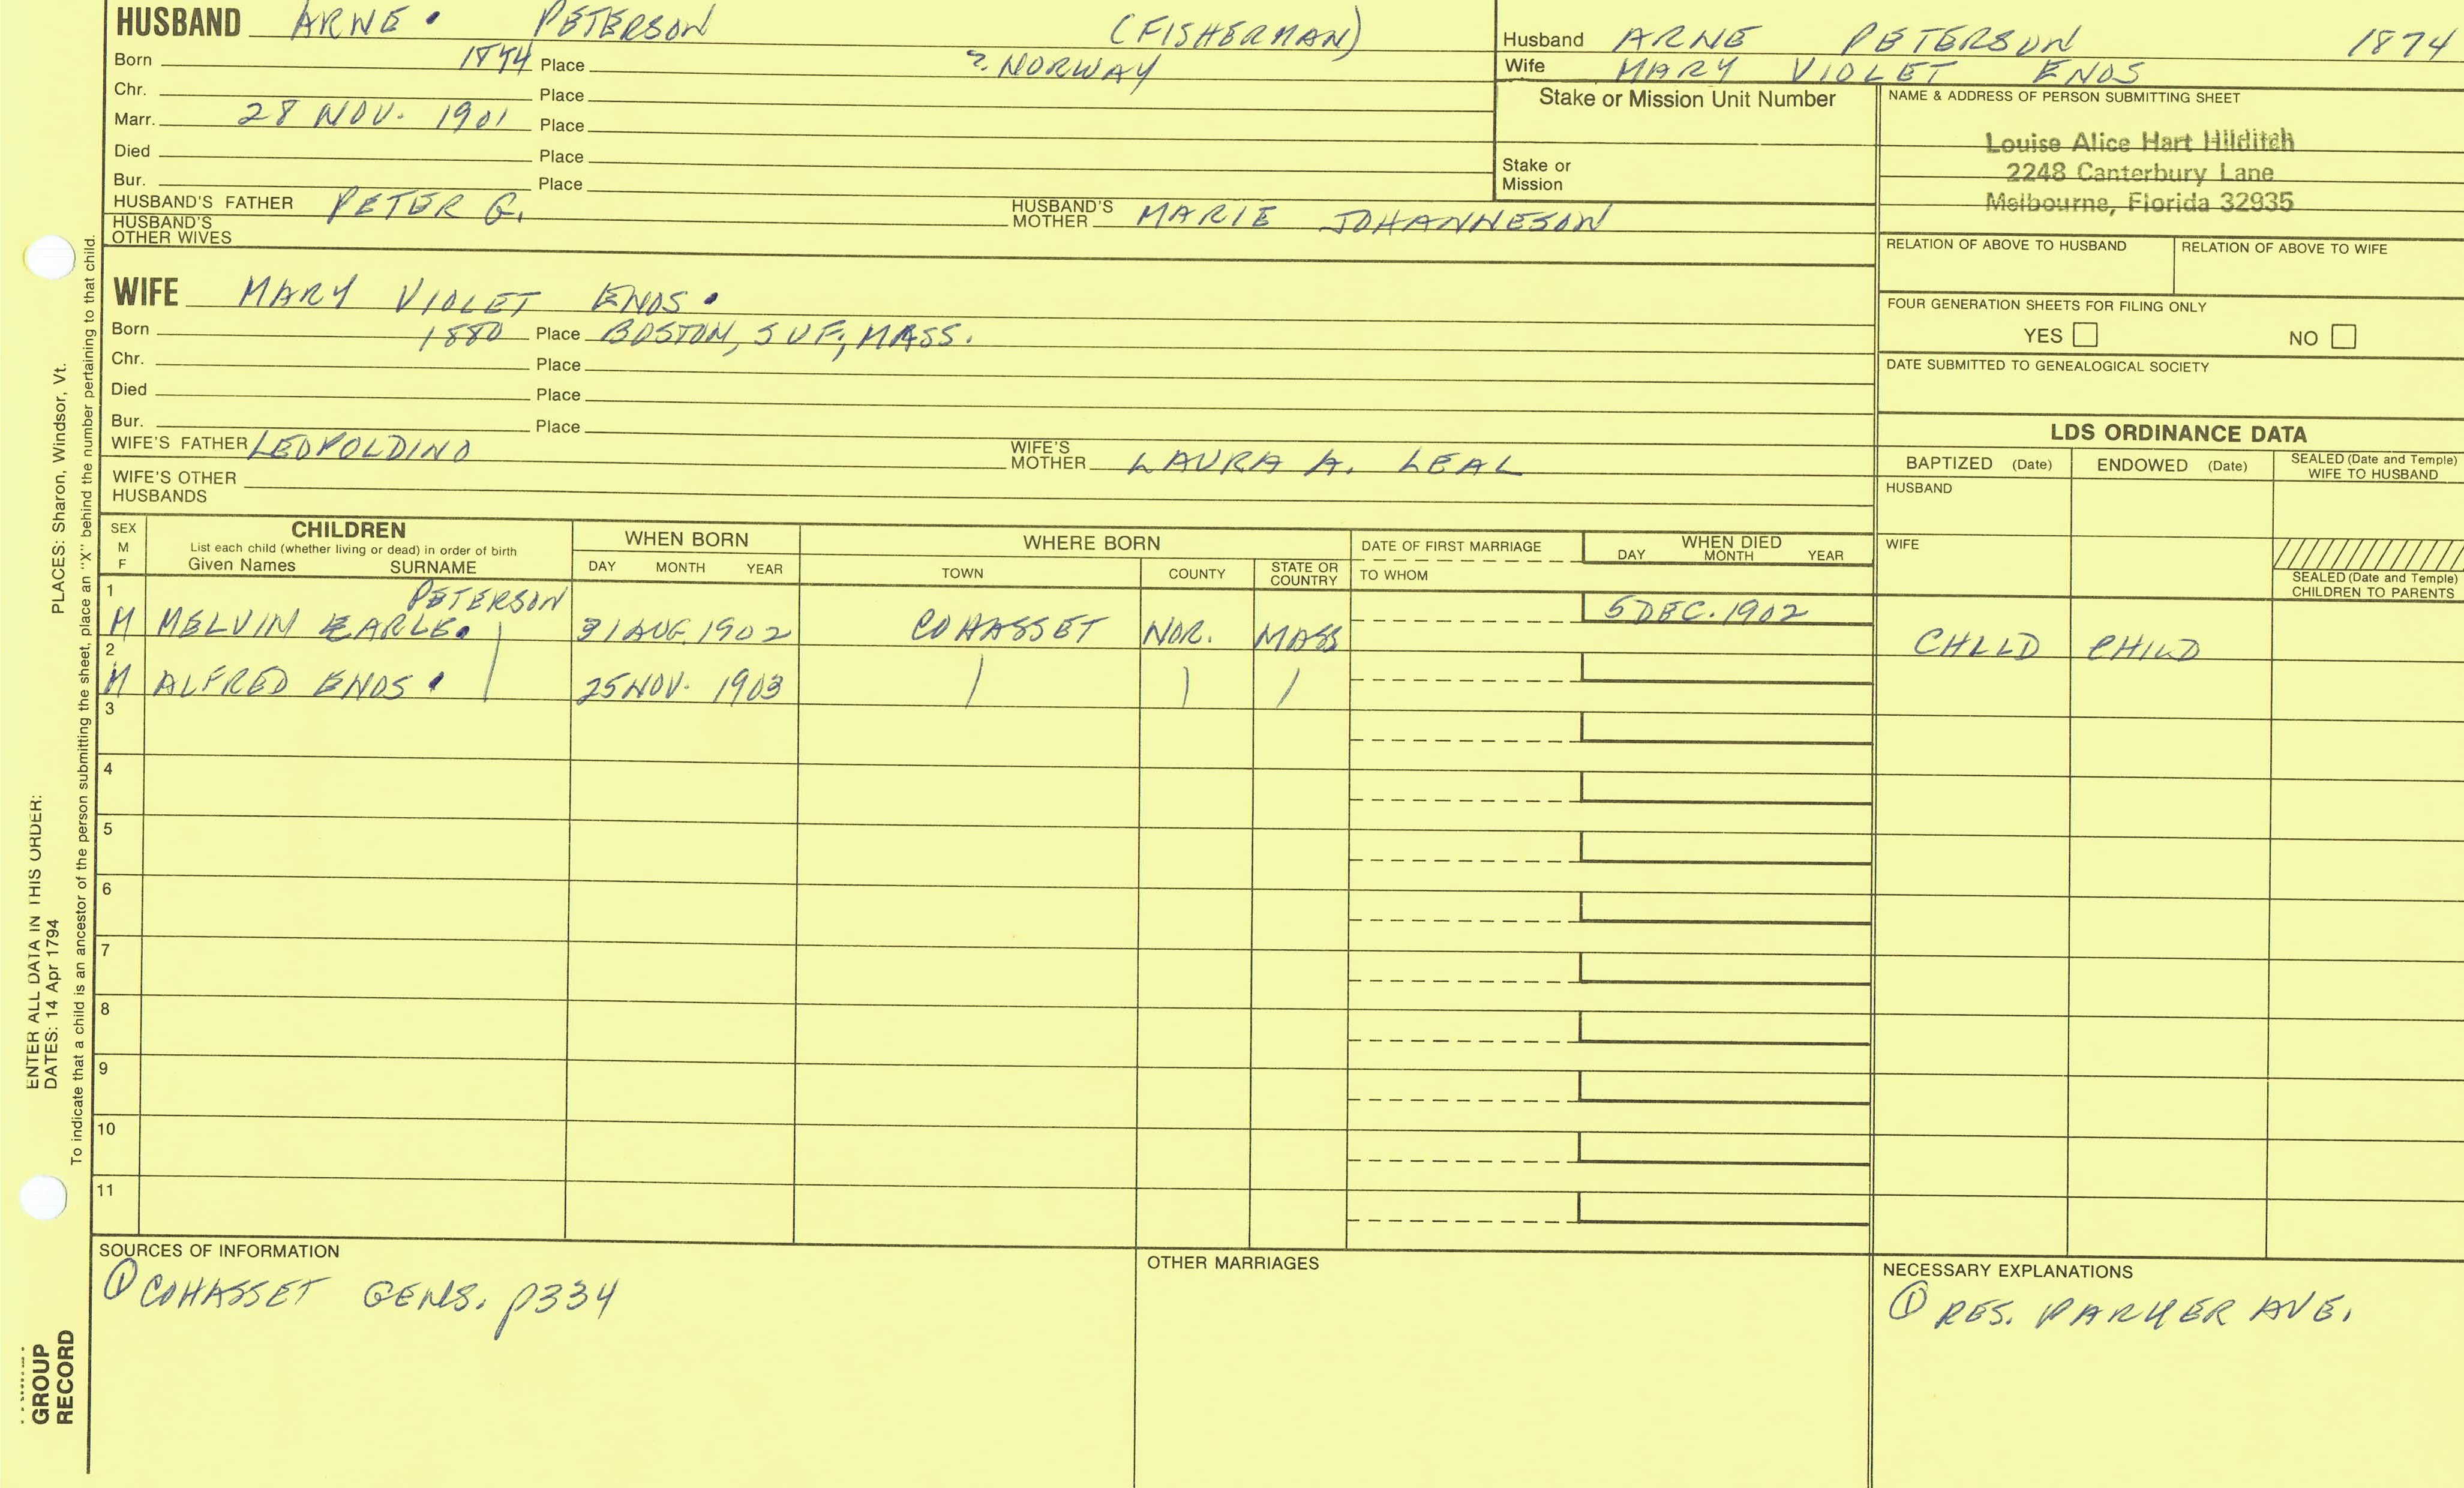 HUSBAND ARNE. PETERSON (FISHERMAN)
Born 1874 Place ?. NORWAY
Chr. Place
Marr. 28 NOV. 1901 Place
Died Place
Bur. Place
HUSBAND'S FATHER PETER G. HUSBAND'S MOTHER MARIE JOHANNESON
HUSBAND'S OTHER WIVES
Husband ARNE PETERSON 1874
Wife MARY VIOLET ENOS
Stake or Mission Unit Number
Stake or Mission
NAME & ADDRESS OF PERSON SUBMITTING SHEET
Louise Alice Hart Hilditch
2248 Canterbury Lane
Melbourne, Florida 32935
RELATION OF ABOVE TO HUSBAND RELATION OF ABOVE TO WIFE
FOUR GENERATION SHEETS FOR FILING ONLY
YES NO
DATE SUBMITTED TO GENEALOGICAL SOCIETY
WIFE MARY VIOLET ENOS.
Born 1880 Place BOSTON, SUF, MASS.
Chr. Place
Died Place
Bur. Place
WIFE'S FATHER LEOPOLDINO WIFE'S MOTHER LAURA A. LEAL
WIFE'S OTHER HUSBANDS
LDS ORDINANCE DATA
BAPTIZED (Date) ENDOWED (Date) SEALED (Date and Temple) WIFE TO HUSBAND
HUSBAND
WIFE
SEALED (Date and Temple) CHILDREN TO PARENTS
SEX M F
CHILDREN
List each child (whether living or dead) in order of birth
Given Names SURNAME
WHEN BORN
DAY MONTH YEAR
WHERE BORN
TOWN COUNTY STATE OR COUNTRY
DATE OF FIRST MARRIAGE
TO WHOM
WHEN DIED
DAY MONTH YEAR
1 PETERSON
M MELVIN EARLE. 31 AUG. 1902 COHASSET NOR. MASS 5 DEC. 1902 CHILD CHILD
2
M ALFRED ENOS. 25 NOV. 1903
3
4
5
6
7
8
9
10
11
SOURCES OF INFORMATION
① COHASSET GENS. p334
OTHER MARRIAGES
NECESSARY EXPLANATIONS
① RES. PARKER AVE.
ENTER ALL DATA IN THIS ORDER:
DATES: 14 Apr 1794 PLACES: Sharon, Windsor, Vt.
To indicate that a child is an ancestor of the person submitting the sheet, place an "X" behind the number pertaining to that child.
GROUP
RECORD